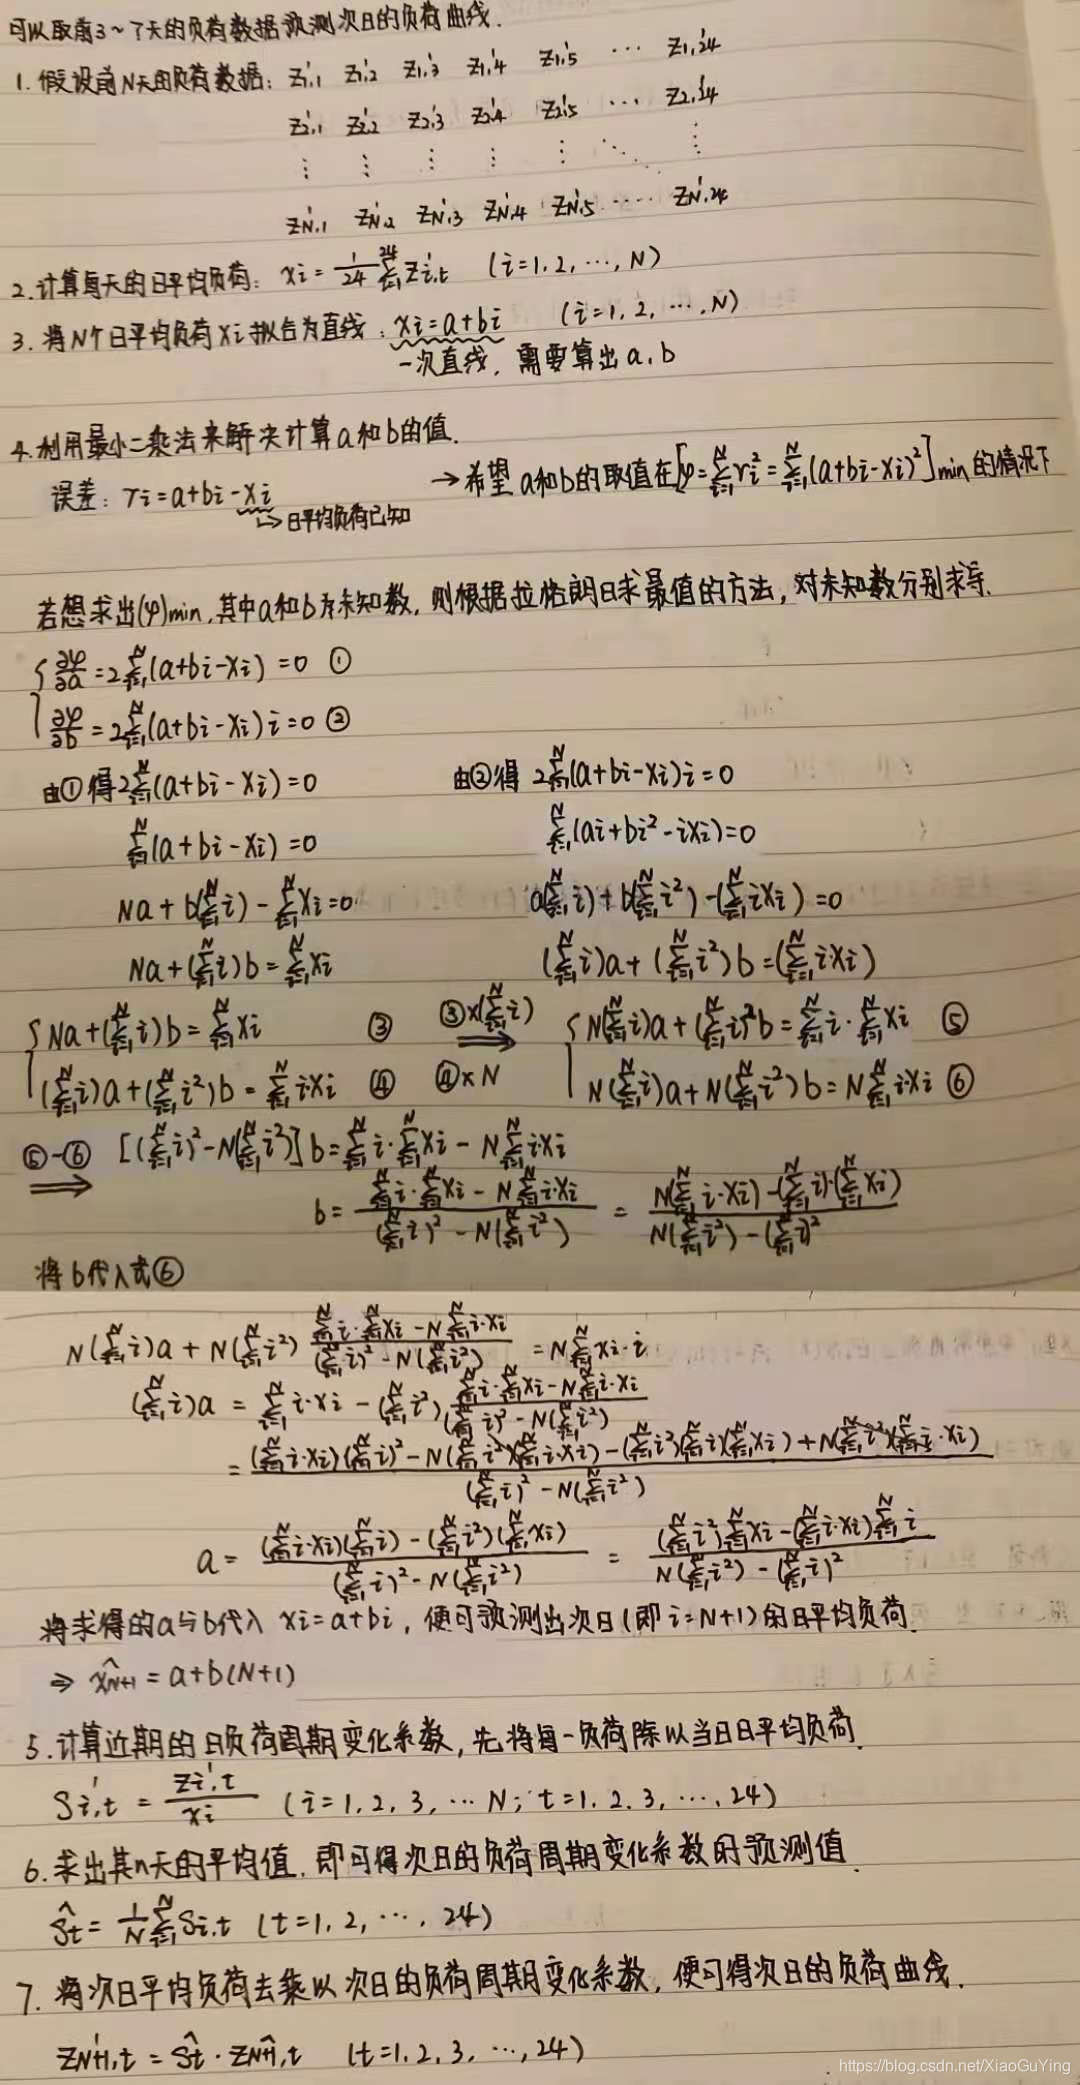 可以取前3~7天的负荷数据预测次日的负荷曲线.
1. 假设前N天的负荷数据: Z₁',₁ Z₁',₂ Z₁',₃ Z₁',₄ Z₁',₅ ⋯ Z₁',₂₄
Z₂',₁ Z₂',₂ Z₂',₃ Z₂',₄ Z₂',₅ ⋯ Z₂',₂₄
⋮ ⋮ ⋮ ⋮ ⋮ ⋱ ⋮
Z_N',₁ Z_N',₂ Z_N',₃ Z_N',₄ Z_N',₅ ⋯⋯ Z_N',₂₄
2. 计算每天的日平均负荷: xi = 1/24 Σ_{t=1}^{24} Zi',t (i=1,2,⋯,N)
3. 将N个日平均负荷xi拟合为直线: xi=a+bi (i=1,2,⋯,N)
一次直线, 需要算出a.b
4. 利用最小二乘法来解决计算a和b的值.
误差: ri=a+bi-xi → 希望a和b的取值在[φ=Σ_{i=1}^{N} ri²=Σ_{i=1}^{N}(a+bi-xi)²]min的情况下
↳日平均负荷已知
若想求出(φ)min, 其中a和b为未知数, 则根据拉格朗日求最值的方法, 对未知数分别求导.
{ ∂φ/∂a = 2Σ_{i=1}^{N}(a+bi-xi)=0 ①
∂φ/∂b = 2Σ_{i=1}^{N}(a+bi-xi)i=0 ②
由①得 2Σ_{i=1}^{N}(a+bi-xi)=0 由②得 2Σ_{i=1}^{N}(a+bi-xi)i=0
Σ_{i=1}^{N}(a+bi-xi)=0 Σ_{i=1}^{N}(ai+bi²-ixi)=0
Na+b(Σ_{i=1}^{N}i)-Σ_{i=1}^{N}xi=0 a(Σ_{i=1}^{N}i)+b(Σ_{i=1}^{N}i²)-(Σ_{i=1}^{N}ixi)=0
Na+(Σ_{i=1}^{N}i)b=Σ_{i=1}^{N}xi (Σ_{i=1}^{N}i)a+(Σ_{i=1}^{N}i²)b=(Σ_{i=1}^{N}ixi)
{ Na+(Σ_{i=1}^{N}i)b=Σ_{i=1}^{N}xi ③ ③×(Σ_{i=1}^{N}i) ⟹ { N(Σ_{i=1}^{N}i)a+(Σ_{i=1}^{N}i)²b=Σ_{i=1}^{N}i·Σ_{i=1}^{N}xi ⑤
(Σ_{i=1}^{N}i)a+(Σ_{i=1}^{N}i²)b=Σ_{i=1}^{N}i·xi ④ ④×N N(Σ_{i=1}^{N}i)a+N(Σ_{i=1}^{N}i²)b=NΣ_{i=1}^{N}i·xi ⑥
⑤-⑥ ⟹ [(Σ_{i=1}^{N}i)²-N(Σ_{i=1}^{N}i²)]b=Σ_{i=1}^{N}i·Σ_{i=1}^{N}xi-NΣ_{i=1}^{N}i·xi
b = (Σ_{i=1}^{N}i·Σ_{i=1}^{N}xi-NΣ_{i=1}^{N}i·xi)/((Σ_{i=1}^{N}i)²-N(Σ_{i=1}^{N}i²)) = (N(Σ_{i=1}^{N}i·xi)-(Σ_{i=1}^{N}i)·(Σ_{i=1}^{N}xi))/(N(Σ_{i=1}^{N}i²)-(Σ_{i=1}^{N}i)²)
将b代入式⑥
N(Σ_{i=1}^{N}i)a+N(Σ_{i=1}^{N}i²)(Σ_{i=1}^{N}i·Σ_{i=1}^{N}xi-NΣ_{i=1}^{N}i·xi)/((Σ_{i=1}^{N}i)²-N(Σ_{i=1}^{N}i²)) = NΣ_{i=1}^{N}xi·i
(Σ_{i=1}^{N}i)a = Σ_{i=1}^{N}i·xi-(Σ_{i=1}^{N}i²)(Σ_{i=1}^{N}i·Σ_{i=1}^{N}xi-NΣ_{i=1}^{N}i·xi)/((Σ_{i=1}^{N}i)²-N(Σ_{i=1}^{N}i²))
= ((Σ_{i=1}^{N}i·xi)(Σ_{i=1}^{N}i)²-N(Σ_{i=1}^{N}i²)(Σ_{i=1}^{N}i·xi)-(Σ_{i=1}^{N}i²)(Σ_{i=1}^{N}i)(Σ_{i=1}^{N}xi)+N(Σ_{i=1}^{N}i²)(Σ_{i=1}^{N}i·xi))/((Σ_{i=1}^{N}i)²-N(Σ_{i=1}^{N}i²))
a = ((Σ_{i=1}^{N}i·xi)(Σ_{i=1}^{N}i)-(Σ_{i=1}^{N}i²)(Σ_{i=1}^{N}xi))/((Σ_{i=1}^{N}i)²-N(Σ_{i=1}^{N}i²)) = ((Σ_{i=1}^{N}i²)Σ_{i=1}^{N}xi-(Σ_{i=1}^{N}i·xi)Σ_{i=1}^{N}i)/(N(Σ_{i=1}^{N}i²)-(Σ_{i=1}^{N}i)²)
将求得的a与b代入 xi=a+bi, 便可预测出次日(即i=N+1)的日平均负荷.
⇒ x̂_{N+1}=a+b(N+1)
5. 计算近期的日负荷周期变化系数, 先将每一负荷除以当日日平均负荷.
Si',t = Zi',t/xi (i=1,2,3,⋯N; t=1,2,3,⋯,24)
6. 求出其n天的平均值, 即可得次日的负荷周期变化系数的预测值.
Ŝt = 1/N Σ_{i=1}^{N} Si,t (t=1,2,⋯,24)
7. 将次日平均负荷去乘以次日的负荷周期变化系数, 便可得次日的负荷曲线.
Z_{N+1}',t = Ŝt·Ẑ_{N+1},t (t=1,2,3,⋯,24)
https://blog.csdn.net/XiaoGuYing